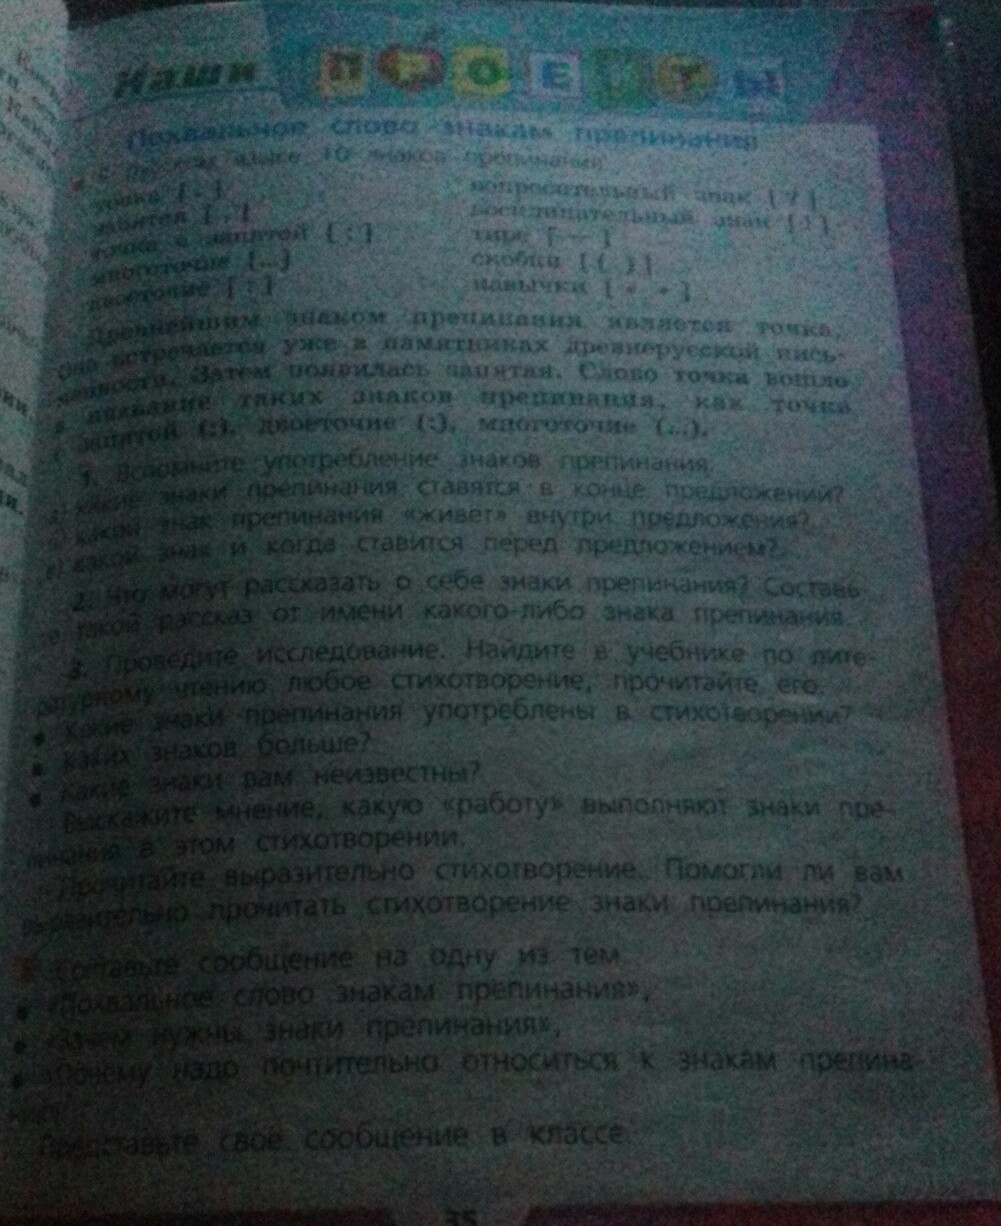 Наши ПРОЕКТЫ
Похвальное слово знакам препинания
В русском языке 10 знаков препинания:
точка [ . ]
запятая [ , ]
точка с запятой [ ; ]
многоточие [...]
двоеточие [ : ]
вопросительный знак [ ? ]
восклицательный знак [ ! ]
тире [ — ]
скобки [ ( ) ]
кавычки [ « » ]
Древнейшим знаком препинания является точка.
Она встречается уже в памятниках древнерусской пись-
менности. Затем появилась запятая. Слово точка вошло
в название таких знаков препинания, как точка
с запятой (;), двоеточие (:), многоточие (...).
1. Вспомните употребление знаков препинания:
а) какие знаки препинания ставятся в конце предложений?
б) какой знак препинания «живет» внутри предложения?
в) какой знак и когда ставится перед предложением?
2. Что могут рассказать о себе знаки препинания? Составь-
те такой рассказ от имени какого-либо знака препинания.
3. Проведите исследование. Найдите в учебнике по лите-
ратурному чтению любое стихотворение, прочитайте его.
• Какие знаки препинания употреблены в стихотворении?
• Каких знаков больше?
• Какие знаки вам неизвестны?
Выскажите мнение, какую «работу» выполняют знаки пре-
пинания в этом стихотворении.
Прочитайте выразительно стихотворение. Помогли ли вам
выразительно прочитать стихотворение знаки препинания?
Составьте сообщение на одну из тем:
• «Похвальное слово знакам препинания»,
• «Зачем нужны знаки препинания»,
• «Почему надо почтительно относиться к знакам препина-
Представьте своё сообщение в классе.
35